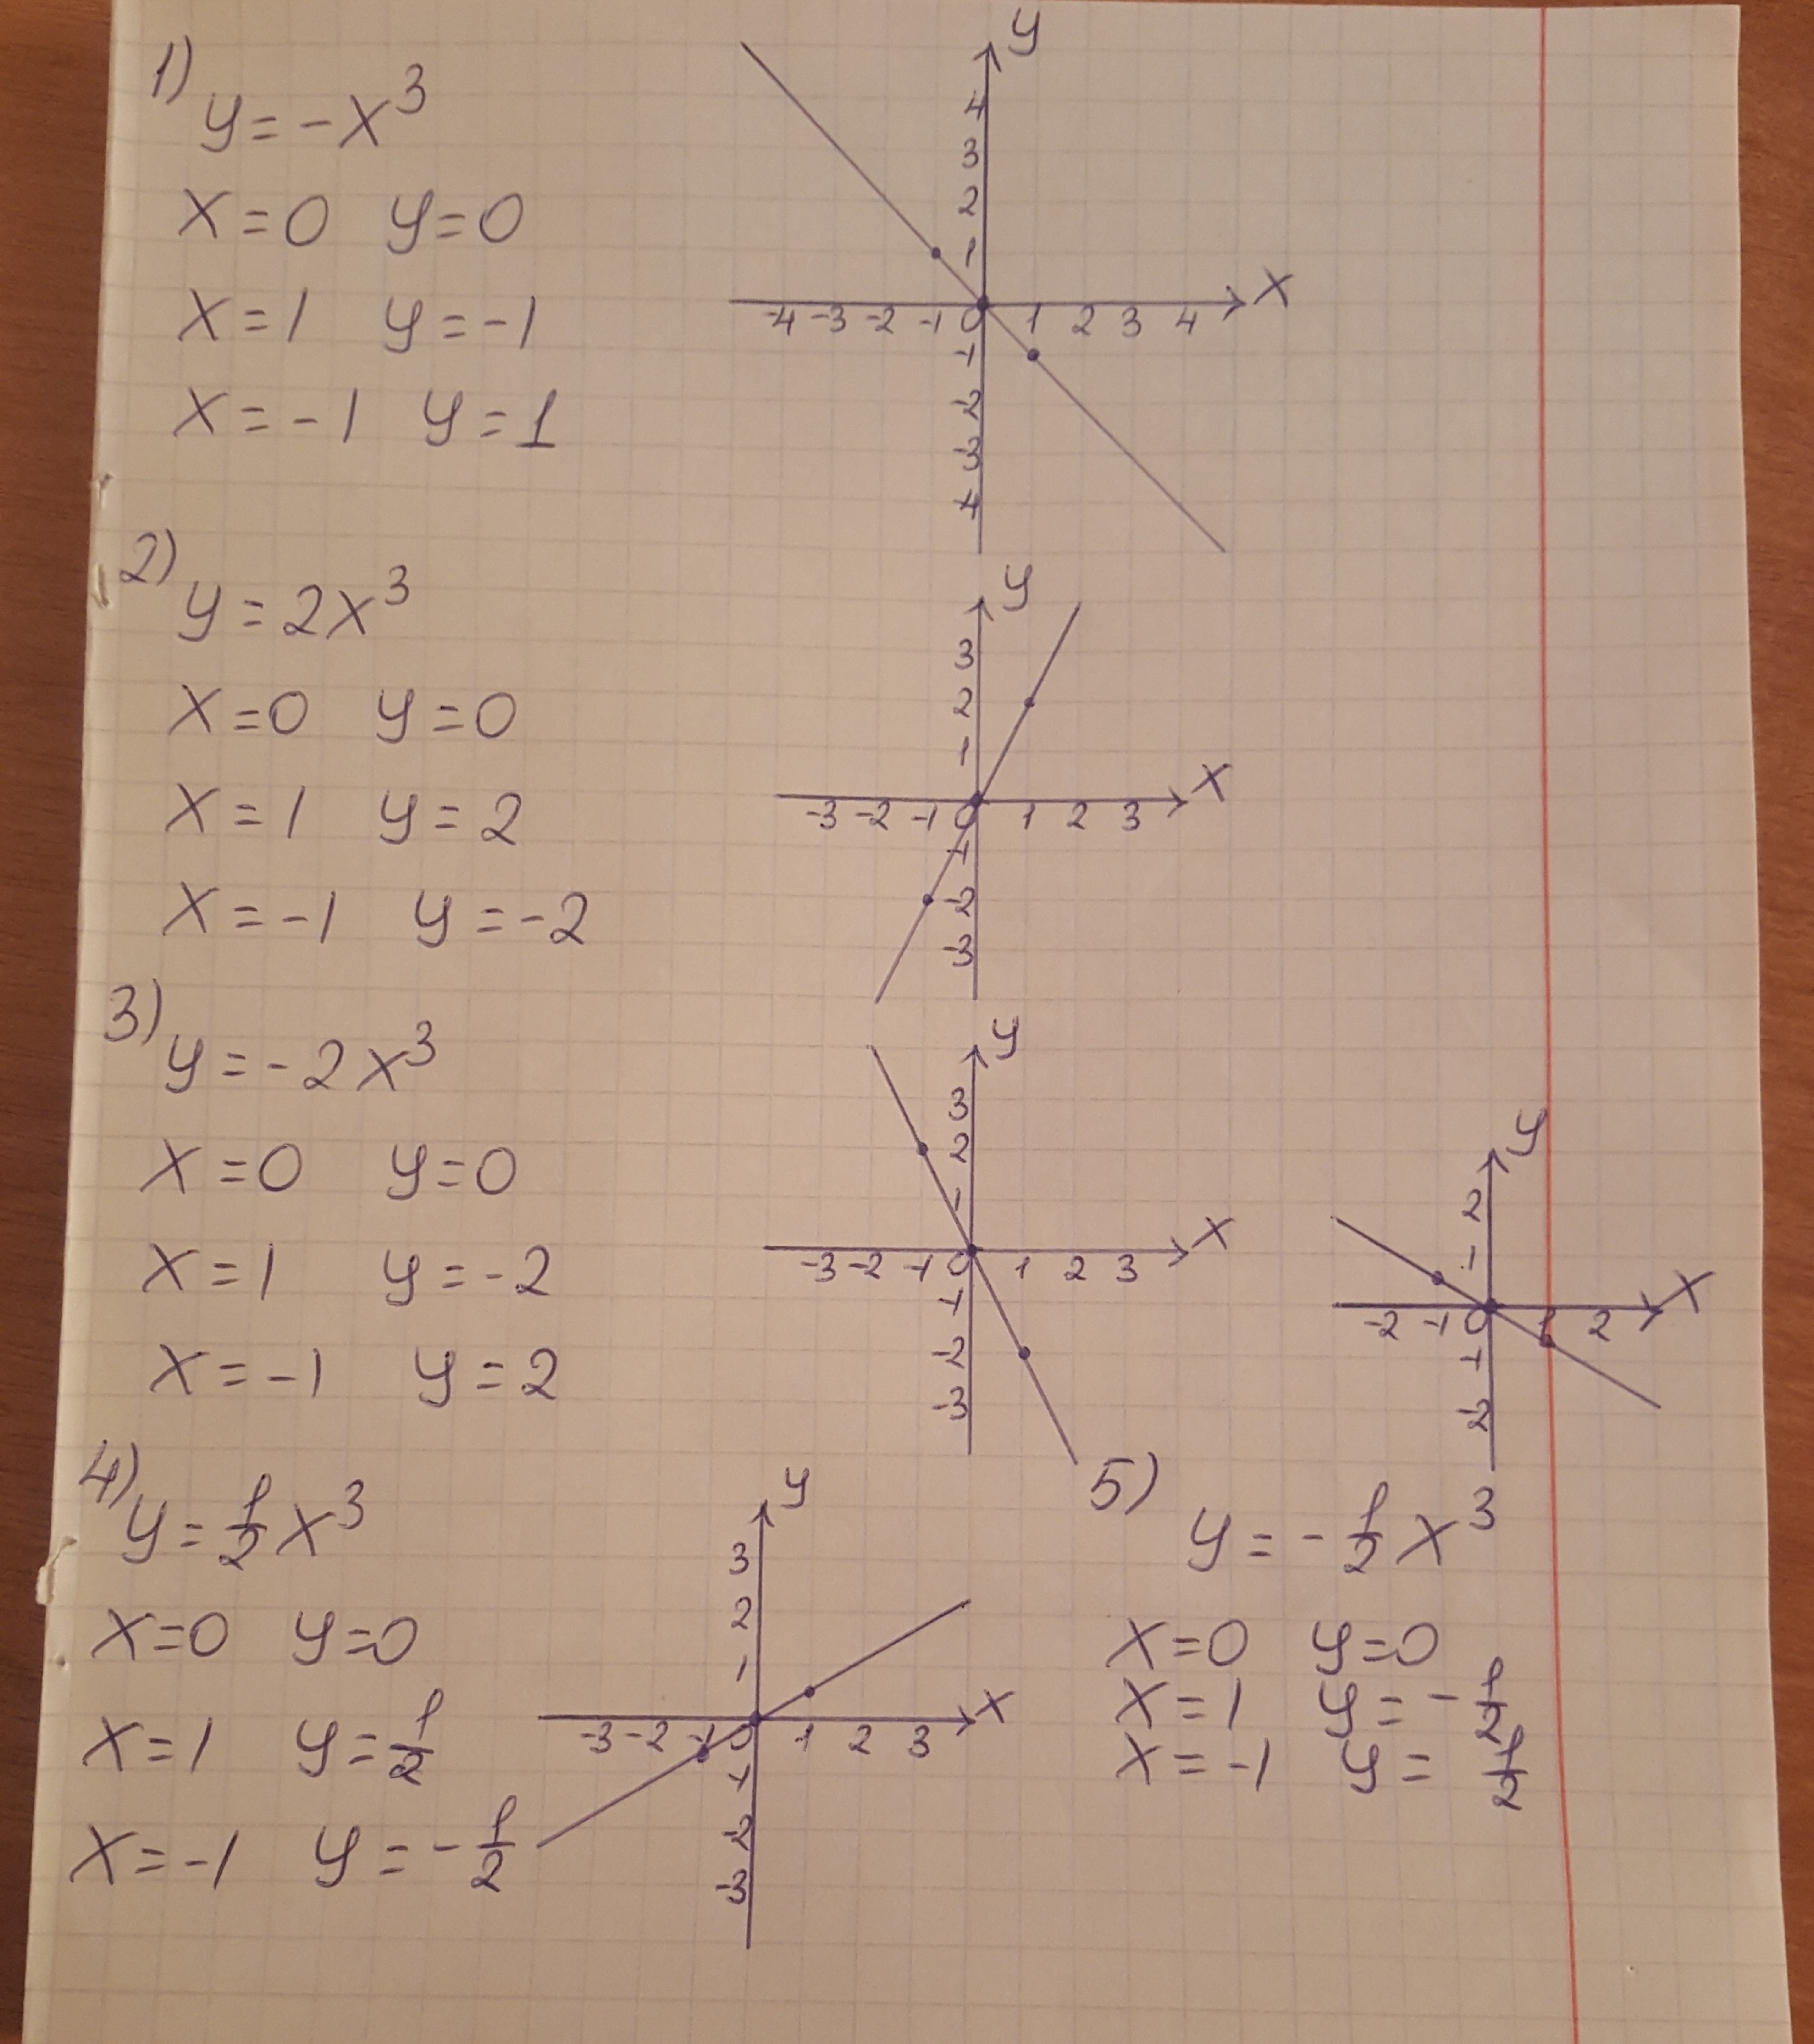 1)
y = -x³
x = 0 y = 0
x = 1 y = -1
x = -1 y = 1
y
4
3
2
1
-4 -3 -2 -1 0 1 2 3 4 x
-1
-2
-3
-4
2)
y = 2x³
x = 0 y = 0
x = 1 y = 2
x = -1 y = -2
y
3
2
1
-3 -2 -1 0 1 2 3 x
-1
-2
-3
3)
y = -2x³
x = 0 y = 0
x = 1 y = -2
x = -1 y = 2
y
3
2
1
-3 -2 -1 0 1 2 3 x
-1
-2
-3
4)
y = ½x³
x = 0 y = 0
x = 1 y = ½
x = -1 y = -½
y
3
2
1
-3 -2 -1 0 1 2 3 x
-1
-2
-3
y
2
1
-2 -1 0 1 2 x
-1
-2
5)
y = -½x³
x = 0 y = 0
x = 1 y = -½
x = -1 y = ½